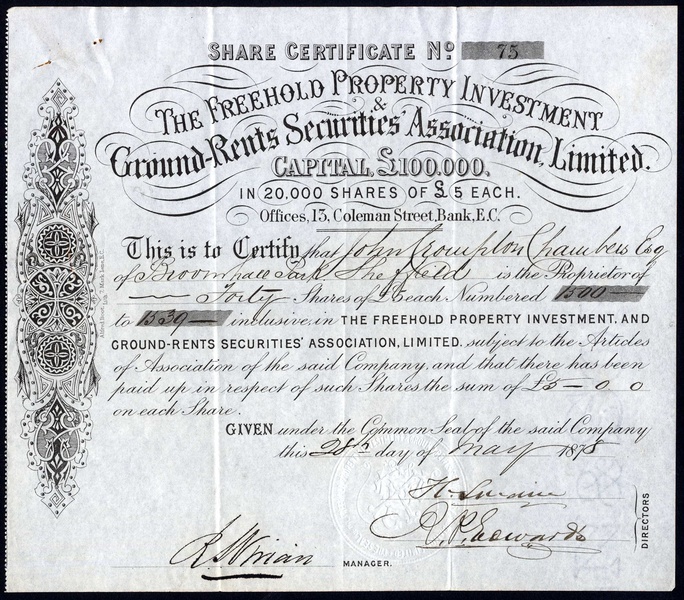 SHARE CERTIFICATE No 75
THE FREEHOLD PROPERTY INVESTMENT
&
Ground-Rents Securities' Association, Limited.
CAPITAL, £100,000.
IN 20,000 SHARES OF £5 EACH.
Offices, 13, Coleman Street, Bank, E.C.
This is to Certify that John Crompton Chambers Esq
of Broomhall Park Sheffield is the Proprietor of
Forty Shares of £5 each Numbered 1500
to 1539 inclusive, in THE FREEHOLD PROPERTY INVESTMENT, AND
GROUND-RENTS SECURITIES' ASSOCIATION, LIMITED, subject to the Articles
of Association of the said Company, and that there has been
paid up in respect of such Shares the sum of £5-0 0
on each Share.
GIVEN under the Common Seal of the said Company
this 28th day of May 1878
DIRECTORS
MANAGER.